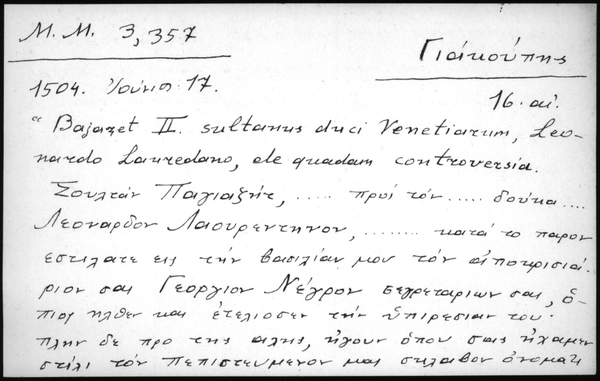 Μ.Μ. 3,357
Γιάκούπης
1504. Ἰούνιο 17.
16. αἰ.
“Bajazet II. sultanus duci Venetiarum, Leo-
nardo Lauredano, de quadam controversia.
Σουλτάν Παγιαζήτ, ..... πρός τόν ..... δούκα ....
Λεοναρδον Λαουρεντηνον, ........ κατά το παρον
εστιλατε εις τήν βασιλίαν μου τόν ἀποκρισιά-
ριον σας Γεοργιον Νέγρον σεγρεταριων σας, ὅ-
πιος ηλθεν και ετελιοσεν τήν ὑπιρεσιαν του.
πλην δε προ της αλης, ηγουν όπου σας ηχαμεν
στίλι τόν πεπιστευμενον μας σκλαβον ονοματι